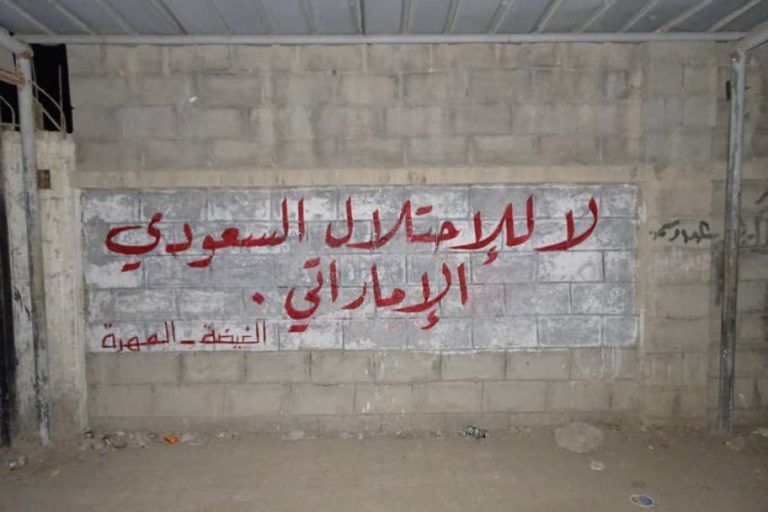 لا للإحتلال السعودي
الإماراتي .
الغيضة - المهرة